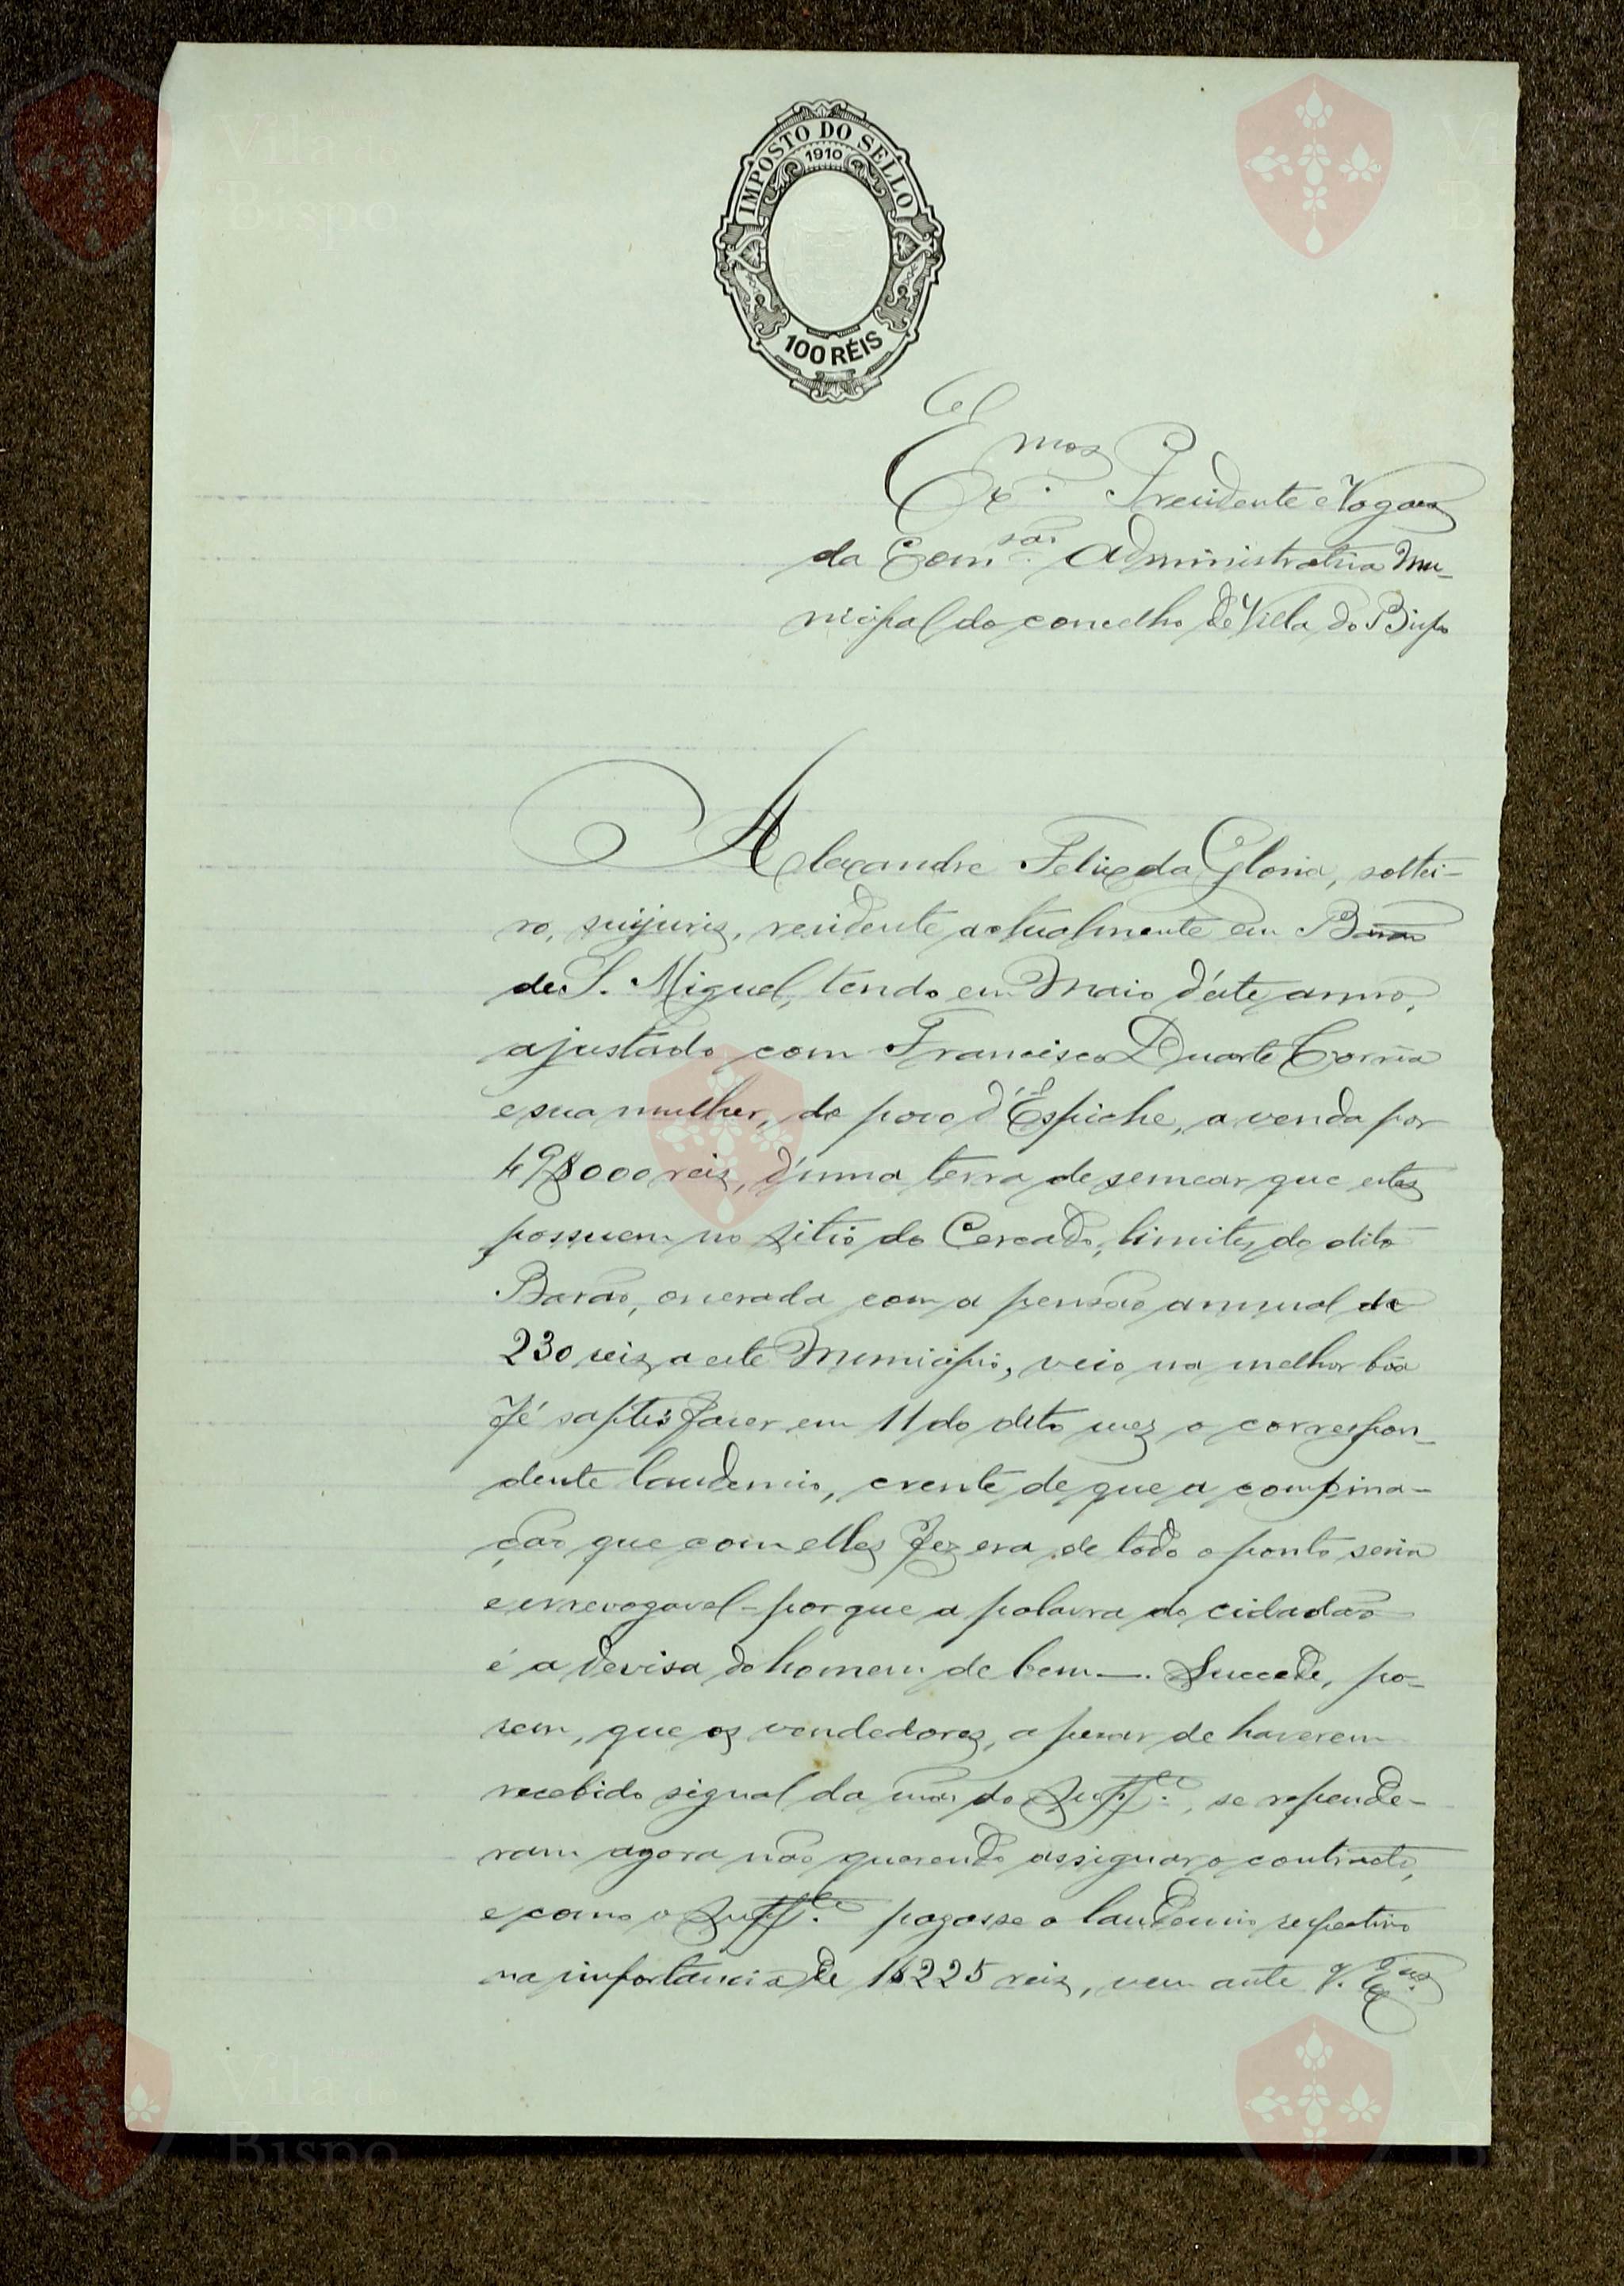 IMPOSTO DO SELLO
1910
100 RÉIS
Ex.mos Presidente e Vogaes
da Com.são Administrativa Mu-
nicipal do concelho de Villa do Bispo
Alexandre Felix da Gloria, soltei-
ro, suijuris, residente actualmente em Barão
de S. Miguel, tendo em Maio d'éste anno,
ajustado com Francisco Duarte Corrêa
e sua mulher, do povo d'Espiche, a venda por
49$000 reis, d'uma terra de semear que estes
possuem no sitio do Cercado, limites do dito
Barão, onerada com a pensão annual de
230 reis a este Municipio, veio na melhor bôa
fé satisfazer em 11 do dito mez o correspon-
dente laudemio, crente de que a combina-
ção que com elles fez era de todo o ponto seria
e irrevogavel - porque a palavra do cidadão
é a devisa do homem de bem -. Succede, po-
rem, que os vendedores, apezar de haverem
recebido signal da mão do Supp.te, se repende-
ram agora não querendo assignar o contracto,
e como o Supp.te pagasse o laudemio respectivo
na importancia de 1$225 reis, vem ante V. Ex.as
Vila do
Bispo